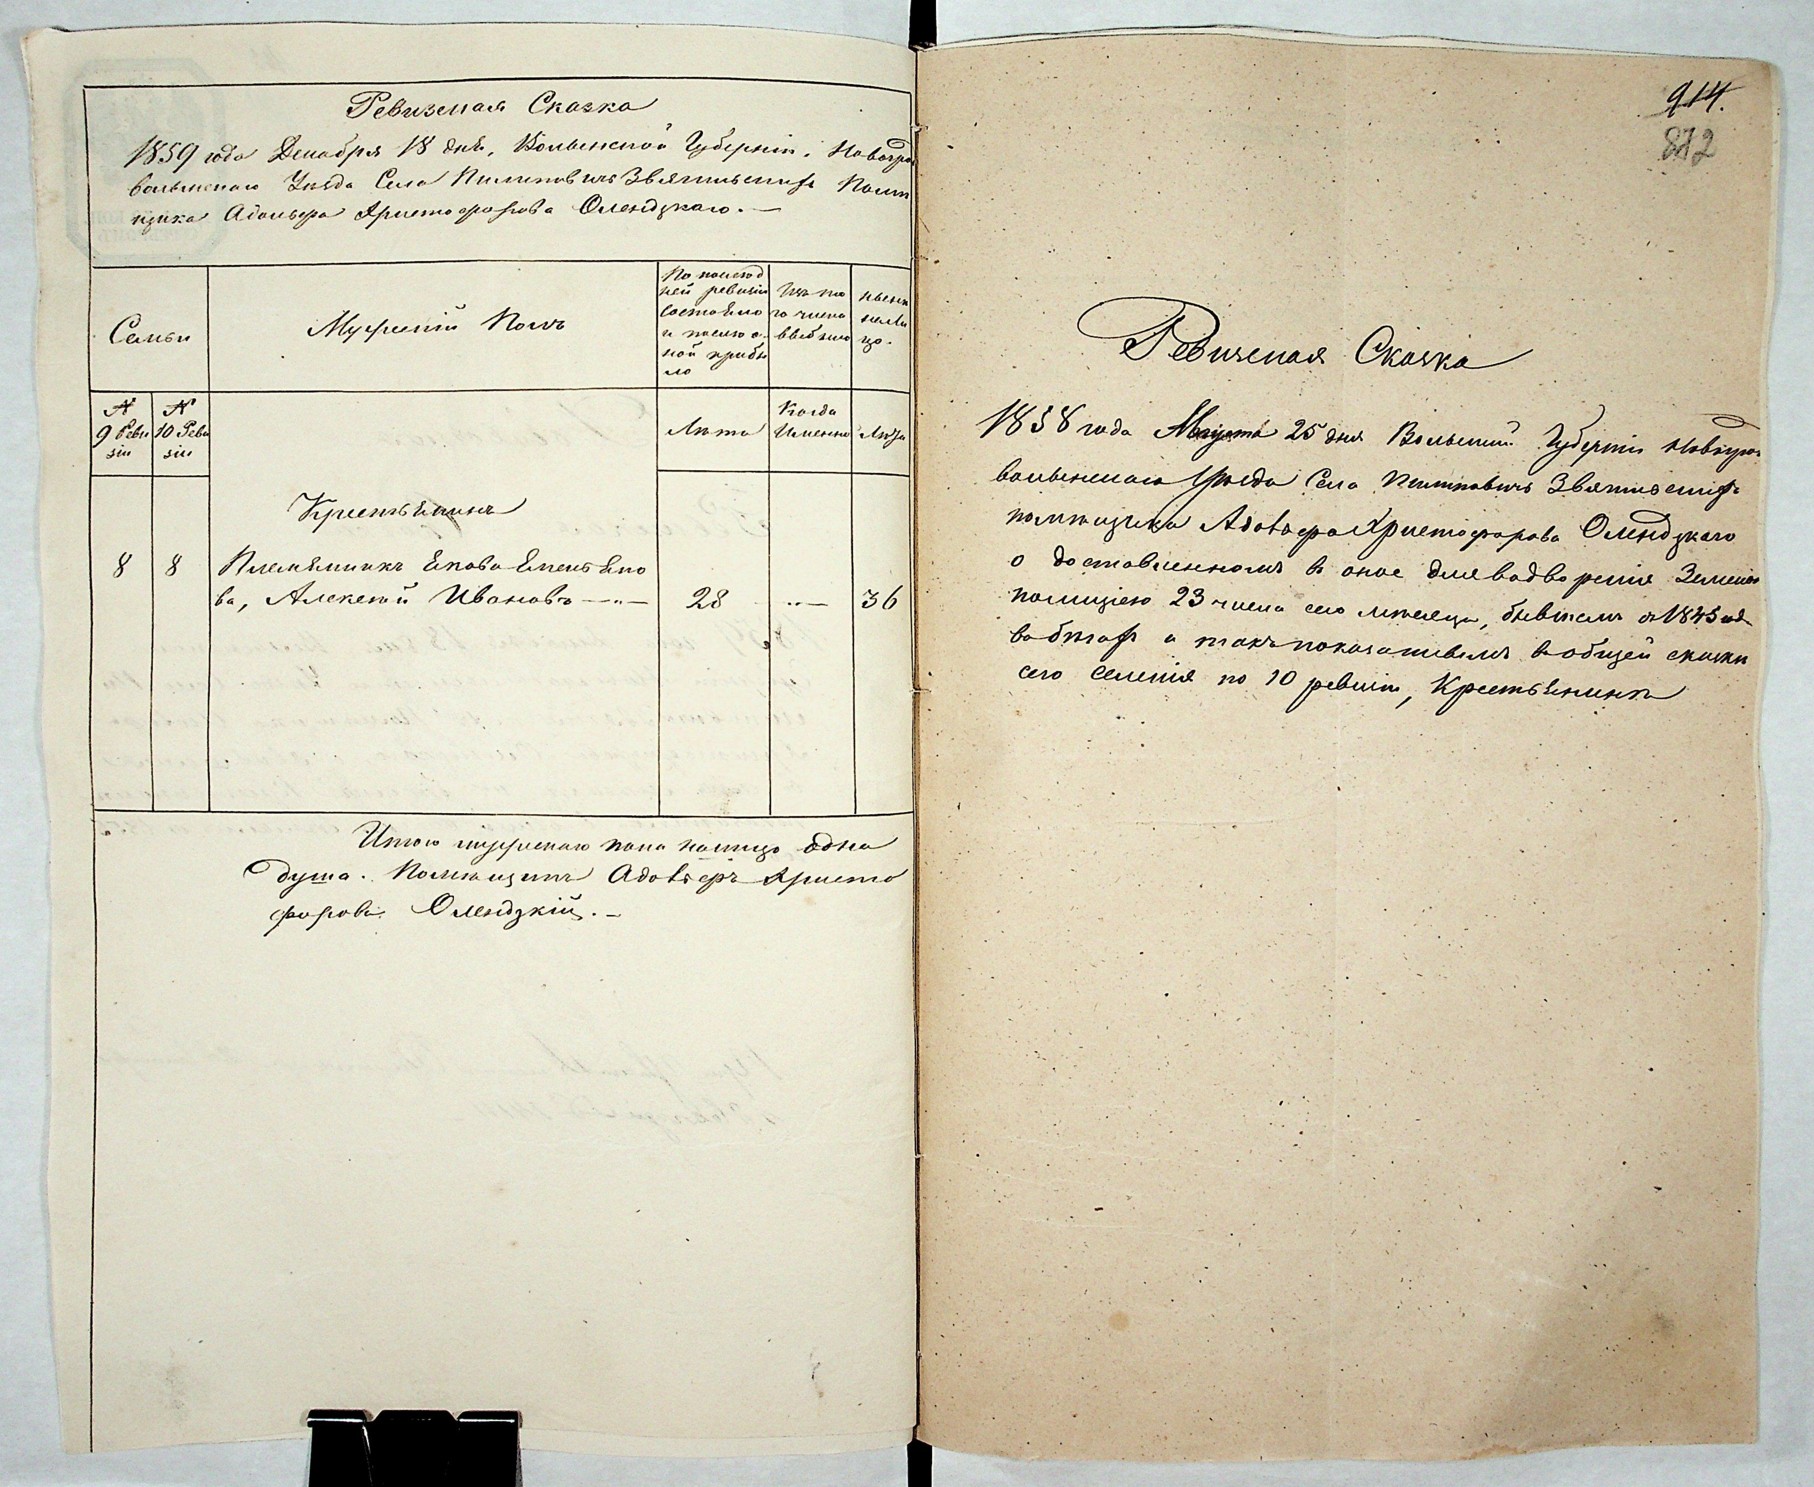 Ревизская Сказка
1859 года Декабря 18 дня, Волынской Губерніи, Новогра
волынскаго Уѣзда Села Пилиповичъ Звягильскихъ Помѣ
щика Адольфа Христофорова Олендзкаго. —
Семьи
Мужескій Полъ
По послѣд
ней ревизіи
состояло
и послѣ о-
ной прибы
ло
Изъ то
го числа
выбыло
нынѣ
налѣ
цо.
№
9 Реви
зіи
№
10 Реви
зіи
Лѣта
Когда
Именно
Лѣта
Крестьянинъ
8 8 Племянникъ Якова Емельяно
ва, Алексѣй Ивановъ —"— 28 —"— 36
Итого мужескаго пола налицо одна
душа. Помѣщикъ Адольфъ Христо
форовъ Олендзкій. —
914.
872
Ревизская Сказка
1858 года Августа 25 дня Волынской Губерніи Новогра
волынскаго Уѣзда Села Пилиповичъ Звягильскихъ
помѣщика Адольфа Христофорова Олендзкаго
о доставленномъ въ оное для водворенія Земскою
полиціею 23 числа сего мѣсяца, бывшемъ съ 1843 года
въ бѣгахъ и такъ показанномъ въ общей сказкѣ
сего селенія по 10 ревизіи, Крестьянинѣ